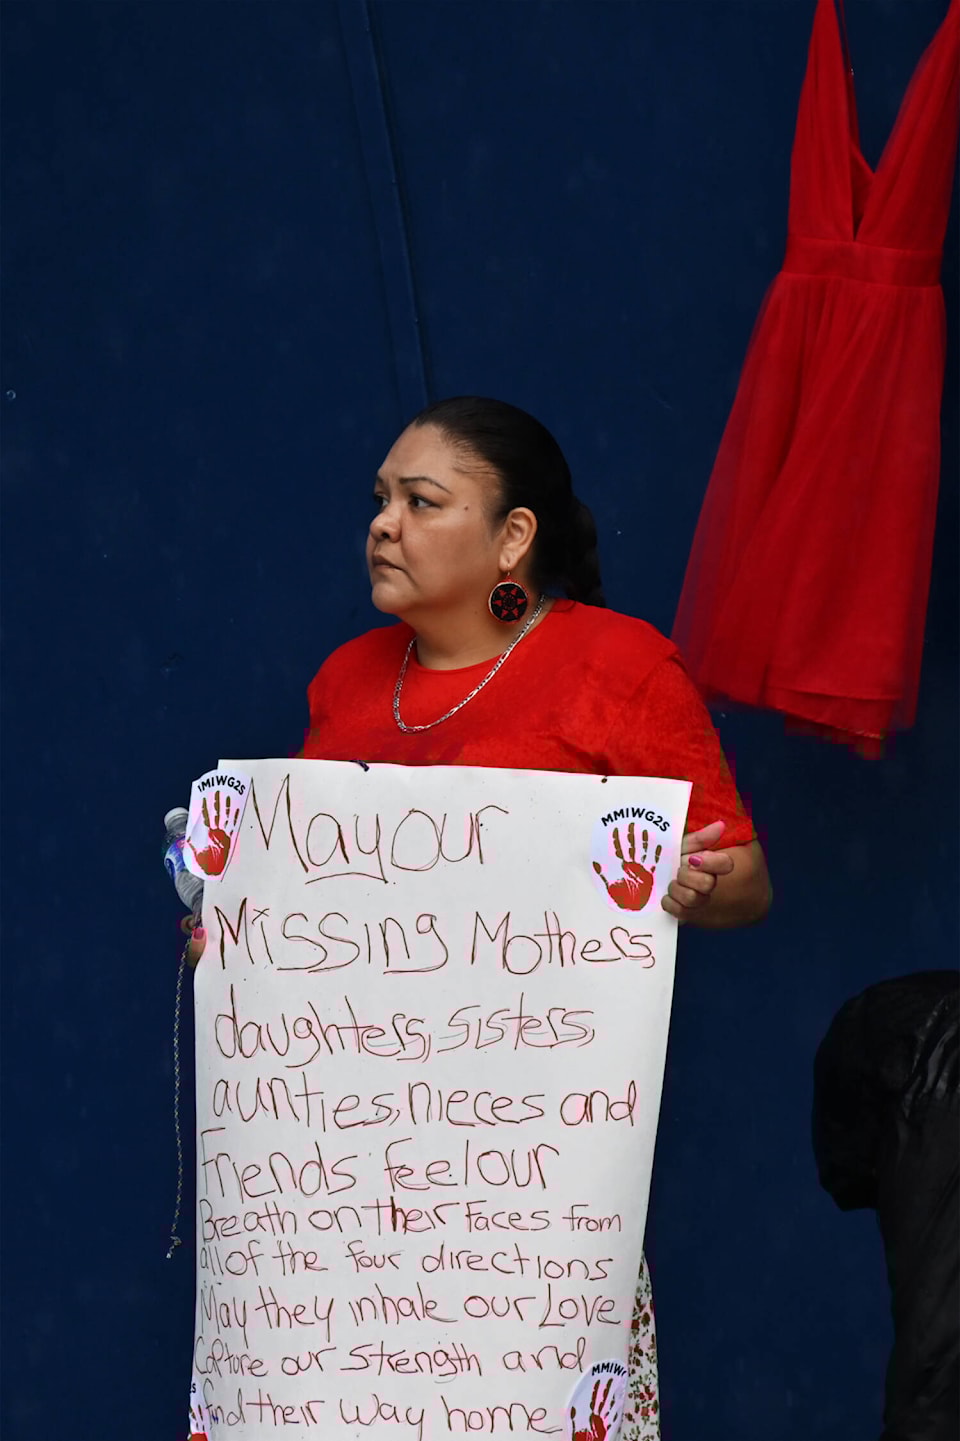 MMIWG2S
MMIWG2S
May our
Missing Mothers,
daughters, sisters,
aunties, nieces and
Friends feel our
Breath on their Faces from
all of the four directions
May they inhale our Love
Capture our strength and
find their way home
MMIW
S